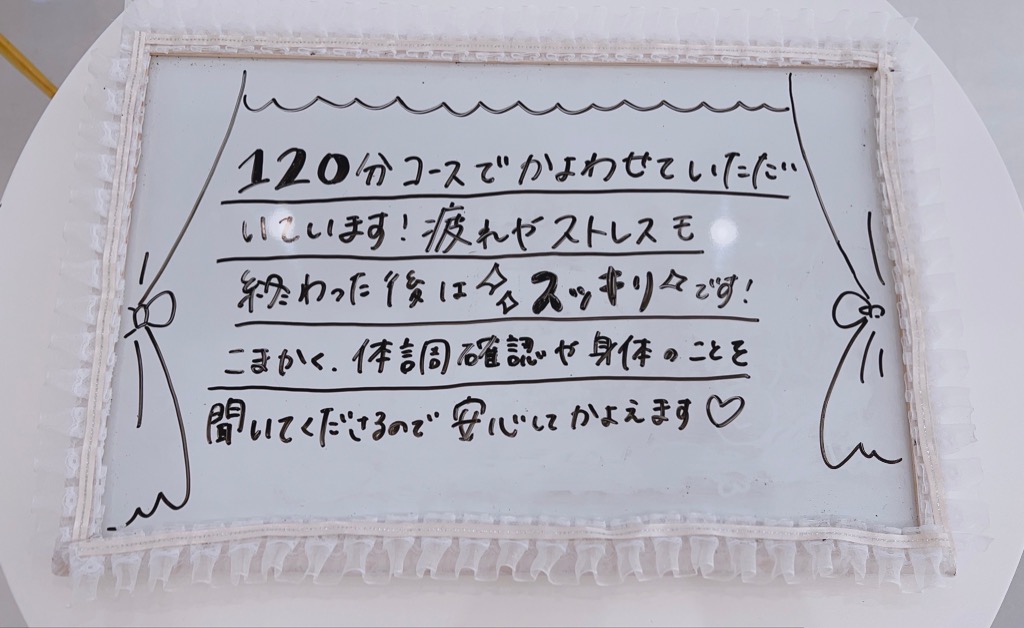 120分コースでかよわせていただい
いています！疲れやストレスモ
終わった後は✧✧スッキリ✧です！
こまかく、体調確認や身体のことを
聞いてくださるので安心してかよえます♡